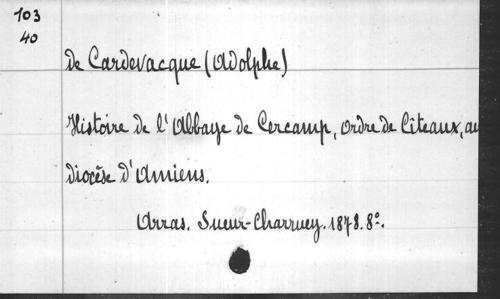 103
40
de Cardevacque (Adolphe)
Histoire de l'Abbaye de Cercamp, ordre de Citeaux, au
diocèse d'Amiens.
Arras. Sueur-Charruey. 1878. 8º.